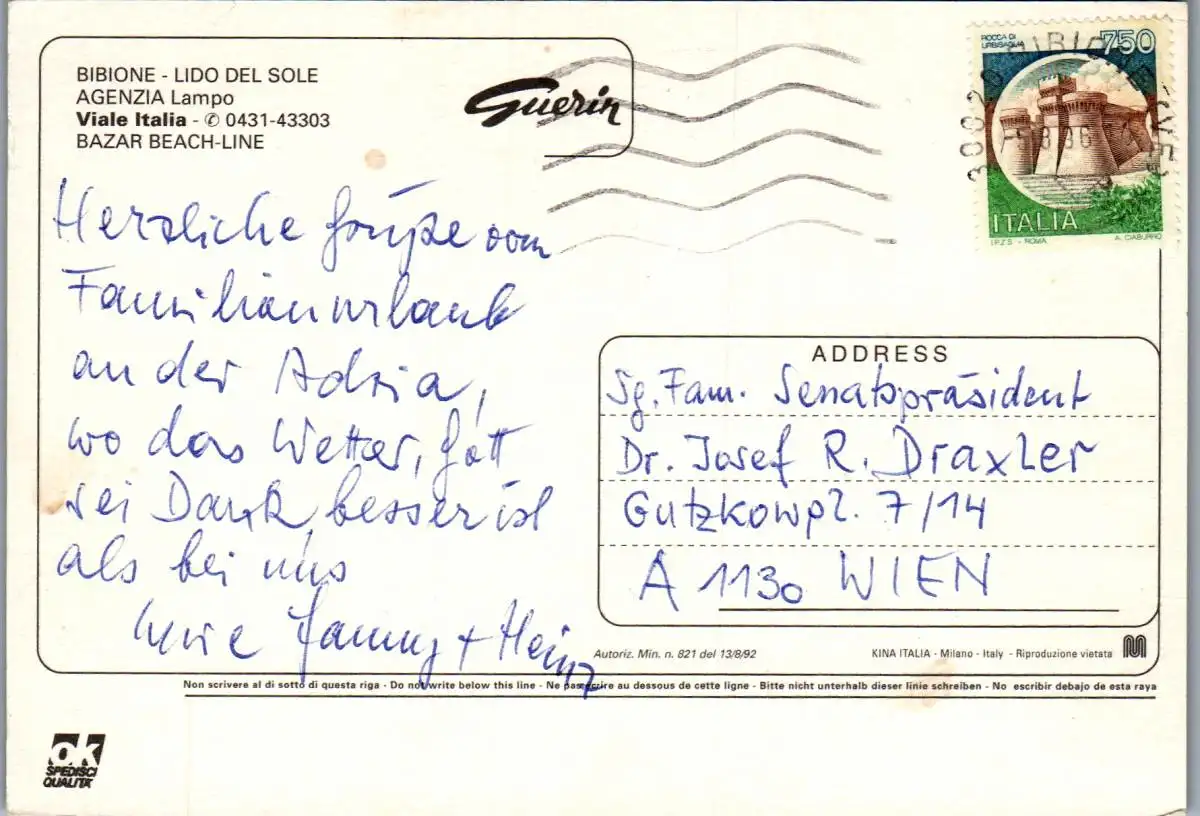 BIBIONE - LIDO DEL SOLE
AGENZIA Lampo
Viale Italia - ✆ 0431-43303
BAZAR BEACH-LINE
Guerin
ROCCA DI
URBISAGLIA
750
30020 BIBIONE
ITALIA
I.P.Z.S. - ROMA A. CIABURRO
Herzliche Grüße vom
Familienurlaub
an der Adria,
wo das Wetter, Gott
sei Dank, besser ist
als bei uns
+ Heinz
ADDRESS
Sg. Fam. Senatspräsident
Dr. Josef R. Draxler
Gutzkowpl. 7/14
A 1130 WIEN
Autoriz. Min. n. 821 del 13/8/92
KINA ITALIA - Milano - Italy - Riproduzione vietata
Non scrivere al di sotto di questa riga - Do not write below this line - Ne pas ecrire au dessous de cette ligne - Bitte nicht unterhalb dieser linie schreiben - No escribir debajo de esta raya
ok
SPEDISCI
QUALITA'